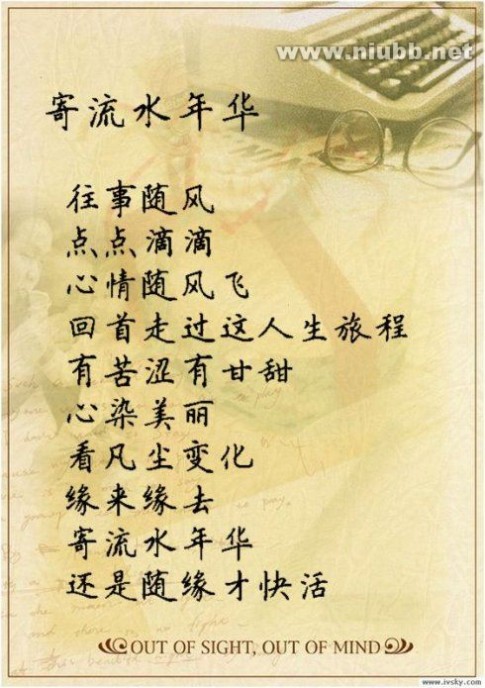 www.niubb.net
寄流水年华
往事随风
点点滴滴
心情随风飞
回首走过这人生旅程
有苦涩有甘甜
心染美丽
看凡尘变化
缘来缘去
寄流水年华
还是随缘才快活
OUT OF SIGHT, OUT OF MIND
www.ivsky.com